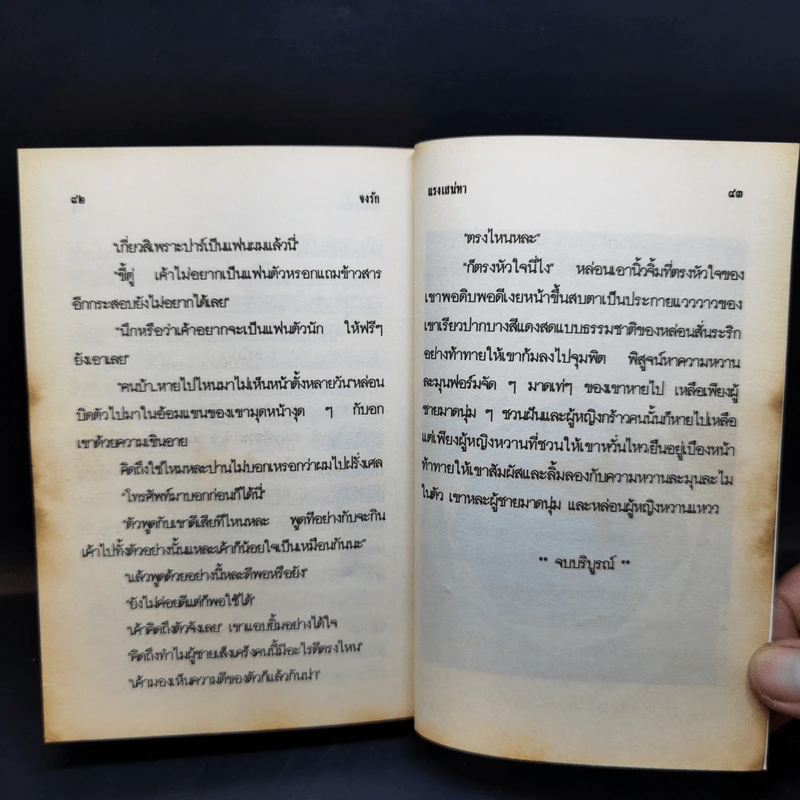 ๔๒
จงรัก
"เกี่ยวสิเพราะปาร์เป็นแฟนผมแล้วนี่"
"ขี้ตู่ เค้าไม่อยากเป็นแฟนตัวหรอกแถมข้าวสาร
อีกกระสอบยังไม่อยากได้เลย"
"นึกหรือว่าเค้าอยากจะเป็นแฟนตัวนัก ให้ฟรีๆ
ยังเอาเลย"
"คนบ้า..หายไปไหนมาไม่เห็นหน้าตั้งหลายวัน"หล่อน
บิดตัวไปมาในอ้อมแขนของเขามุดหน้างุด ๆ กับอก
เขาด้วยความเขินอาย
คิดถึงใช่ไหมหละปานไม่บอกเหรอกว่าผมไปฝรั่งเศล
"โทรศัพท์มาบอกก่อนก็ได้นี่"
"ตัวพูดกับเขาดีเสียที่ไหนหละ พูดทีอย่างกับจะกิน
เค้าไปทั้งตัวอย่างนั้นแหละเค้าก็น้อยใจเป็นเหมือนกันนะ"
"แล้วพูดด้วยอย่างนี้หละดีพอหรือยัง"
"ยังไม่ค่อยดีแต่ก็พอใช้ได้"
"เค้าคิดถึงตัวจังเลย" เขาแอบยิ้มอย่างได้ใจ
"คิดถึงทำไมผู้ชายเส็งเคร็งคนนี้มีอะไรดีตรงไหน"
"เค้ามองเห็นความดีของตัวก็แล้วกันน่า"
แรงเสน่หา
๔๓
"ตรงไหนหละ"
"ก็ตรงหัวใจนี่ไง" หล่อนเอานิ้วจิ้มที่ตรงหัวใจของ
เขาพอดิบพอดีเงยหน้าขึ้นสบตาเป็นประกายแวววาวของ
เขาเรียวปากบางสีแดงสดแบบธรรมชาติของหล่อนสั่นระริก
อย่างท้าทายให้เขาก้มลงไปจุมพิต พิสูจน์หาความหวาน
ละมุนฟอร์มจัด ๆ มาดเท่ๆ ของเขาหายไป เหลือเพียงผู้
ชายมาดนุ่ม ๆ ชวนฝันและผู้หญิงกร้าวคนนั้นก็หายไปเหลือ
แต่เพียงผู้หญิงหวานที่ชวนให้เขาหวั่นไหวยืนอยู่เบื้องหน้า
ท้าทายให้เขาสัมผัสและลิ้มลองกับความหวานละมุนละไม
ในตัว เขาหละผู้ชายมาดนุ่ม และหล่อนผู้หญิงหวานแหวว
** จบบริบูรณ์ **